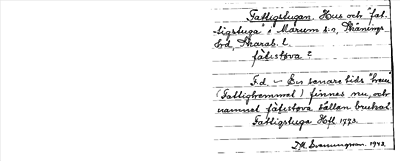 Fattigstugan. Hus och "fat-
tigstuga" i Marum s:n, Skånings
hrd, Skarab. l.
fäbistova?
F.d. – En senare tids "hem"
(Fattighemmet) finnes nu, och
namnet fäbistova sällan brukat.
Fattigstuga Hfl 1793.
1943.